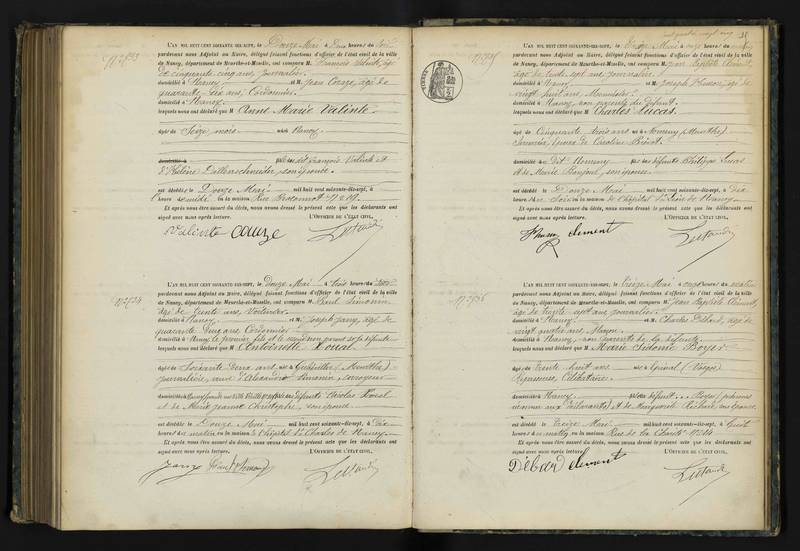 N° 733
L'AN MIL HUIT CENT SOIXANTE-DIX-SEPT, le Douze Mai à Deux heures du soir
pardevant nous Adjoint au Maire, délégué faisant fonctions d'officier de l'état civil de la ville
de Nancy, département de Meurthe-et-Moselle, ont comparu M. François Valinte, âgé
de cinquante cinq ans, journalier
domicilié à Nancy et M. Jean Couze, âgé de
quarante six ans, Cordonnier
domicilié à Nancy
lesquels nous ont déclaré que M Anne Marie Valinte
âgée de Seize mois née à Nancy
domicilié à fille de dit François Valinte et
d'Hélène son épouse
est décédée le Douze Mai mil huit cent soixante-dix-sept, à
heure de midi en la maison Rue
Et après nous être assuré du décès, nous avons dressé le présent acte que les déclarants ont
signé avec nous après lecture. L'OFFICIER DE L'ÉTAT CIVIL,
Valinte Couze
N° 734
L'AN MIL HUIT CENT SOIXANTE-DIX-SEPT, le Douze Mai à trois heures du soir
pardevant nous Adjoint au Maire, délégué faisant fonctions d'officier de l'état civil de la ville
de Nancy, département de Meurthe-et-Moselle, ont comparu M. Paul Simonin
âgé de trente ans, Voiturier
domicilié à Nancy et M. Joseph Jany, âgé de
quarante cinq ans, Cordonnier
domicilié à Nancy le premier fils et le second non parent de la défunte
lesquels nous ont déclaré que M Antoinette
âgée de Soixante deux ans née à (Meurthe)
journalière, veuve d'Alexandre Simonin
domiciliée à Nancy fille des défunts Nicolas
et de Marie Jeanne Christophe, son épouse
est décédée le Douze Mai mil huit cent soixante-dix-sept, à Dix
heures du matin en la maison de l'hôpital St Charles de Nancy
Et après nous être assuré du décès, nous avons dressé le présent acte que les déclarants ont
signé avec nous après lecture. L'OFFICIER DE L'ÉTAT CIVIL,
Jany Simonin
N° 735
L'AN MIL HUIT CENT SOIXANTE-DIX-SEPT, le Treize Mai à onze heures du matin
pardevant nous Adjoint au Maire, délégué faisant fonctions d'officier de l'état civil de la ville
de Nancy, département de Meurthe-et-Moselle, ont comparu M. Jean Baptiste Clément,
âgé de trente sept ans, journalier
domicilié à Nancy et M. Joseph, âgé de
vingt huit ans, Menuisier
domicilié à Nancy, non parents du défunt
lesquels nous ont déclaré que M Charles Lucas
âgé de Cinquante trois ans né à Nomeny (Meurthe)
époux de Caroline
domicilié à dit Nomeny fils des défunts Philippe Lucas
et de Marie son épouse
est décédé le Douze Mai mil huit cent soixante-dix-sept, à dix
heures du Soir en la maison de l'hôpital de Nancy
Et après nous être assuré du décès, nous avons dressé le présent acte que les déclarants ont
signé avec nous après lecture. L'OFFICIER DE L'ÉTAT CIVIL,
Clement
N° 736
L'AN MIL HUIT CENT SOIXANTE-DIX-SEPT, le Treize Mai à onze heures du matin
pardevant nous Adjoint au Maire, délégué faisant fonctions d'officier de l'état civil de la ville
de Nancy, département de Meurthe-et-Moselle, ont comparu M. Jean Baptiste Clément,
âgé de trente sept ans, journalier
domicilié à Nancy et M. Charles Débard, âgé de
vingt quatre ans, Maçon
domicilié à Nancy, non parents de la défunte
lesquels nous ont déclaré que M Marie Sidonie Boyer
âgée de trente huit ans née à Epinal (Vosges)
Repasseuse, Célibataire
domiciliée à Nancy fille des défunts Boyer (prénoms
inconnus aux déclarants) et de Marguerite Richard, son épouse
est décédée le Treize Mai mil huit cent soixante-dix-sept, à huit
heures du matin, en la maison Rue de la Charité
Et après nous être assuré du décès, nous avons dressé le présent acte que les déclarants ont
signé avec nous après lecture. L'OFFICIER DE L'ÉTAT CIVIL,
Débard Clement